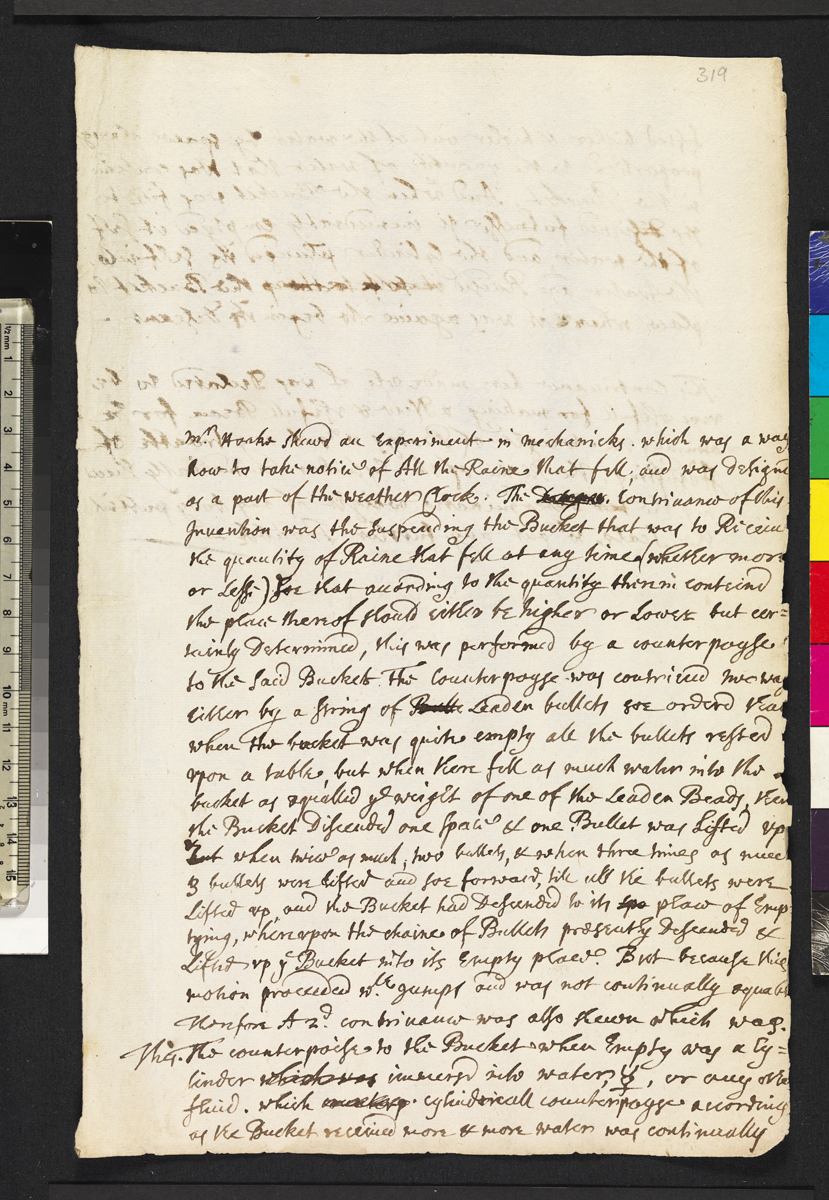 319
Mr. Hooke shewd an Experiment in mechanicks. which was a way
how to take notice of All the Raine that fell, and was designd
as a part of the weather Clock. The contrivance of this
Invention was the suspending the Bucket that was to Receiue
the quantity of Raine that fell at any time (whether more
or Lesse) soe that according to the quantity therein containd
the place thereof should either be higher or Lower but cer=
tainly Determined, this was performed by a counterpoyse
to the said Bucket. The Counterpoyse was contriued
either by a string of Leaden bullets soe orderd that
when the bucket was quite empty all the bullets rested
vpon a table, but when there fell as much water into the
bucket as equalled ye weight of one of the Leaden Beads, then
the Bucket Discended one space & one Bullet was Lifted vp
but when twice as much, two bullets, & when three times as much
3 bullets were lifted and soe forward, till all the bullets were
Lifted vp, and the Bucket had Descended to its place of Emp
tying, wherevpon the chaine of Bullets presently Descended &
Lifted vp ye Bucket into its Empty place. But because this
motion proceeded wth gumps and was not continually equable
Therefore A 2d. contrivance was also shewn which was.
this. The counterpoise to the Bucket when Empty was a Cy=
linder immersd into water, , or any other
fluid. which cylindricall counterpoyse according
as the Bucket receiued more & more water was continually